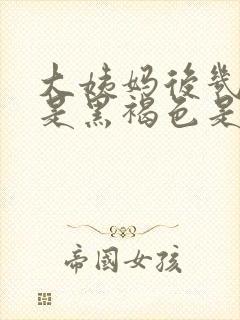 大姨妈后几
是黑褐色是
帝国女孩